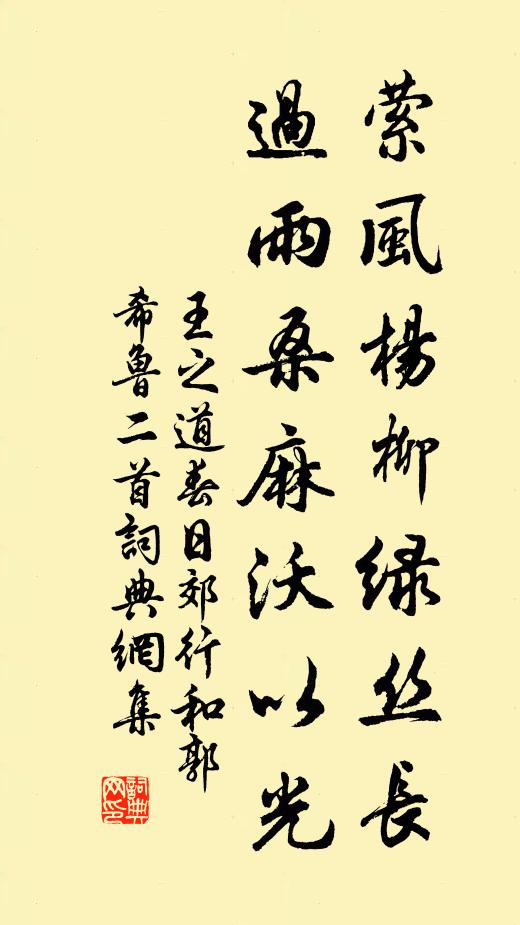 萦風楊柳緑丝長
過雨桑麻沃以光
王之道春日郊行和郭
希魯二首詞典網集
詞典网印